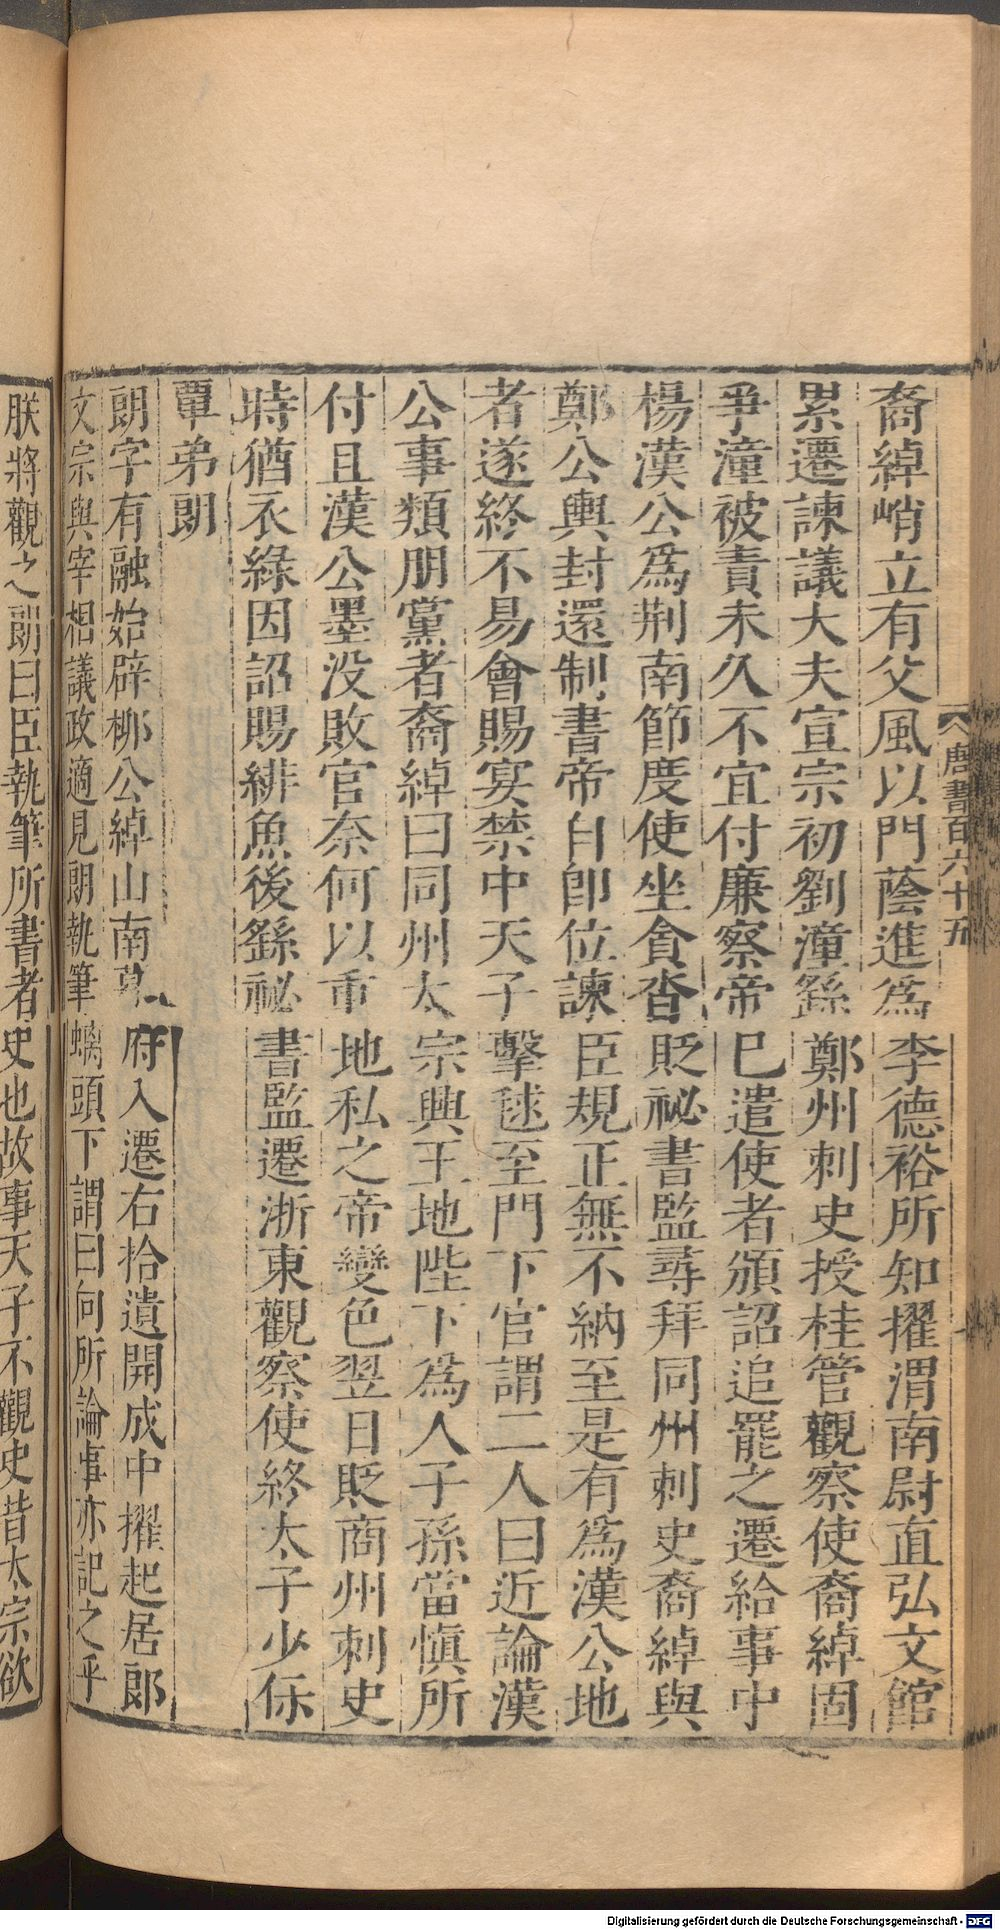 唐書百六十五
裔綽峭立有父風以門蔭進爲李德裕所知擢渭南尉直弘文館
累遷諫議大夫宣宗初劉潼繇鄭州刺史授桂管觀察使裔綽固
爭潼被責未久不宜付廉察帝已遣使者頒詔追罷之遷給事中
楊漢公爲荆南節度使坐貪沓貶祕書監尋拜同州刺史裔綽與
鄭公輿封還制書帝自卽位諫臣規正無不納至是有爲漢公地
者遂終不易會賜宴禁中天子擊毬至門下官謂二人曰近論漢
公事類朋黨者裔綽曰同州太宗興王地陛下爲人子孫當慎所
付且漢公墨没敗官奈何以重地私之帝變色翌日貶商州刺史
時猶衣綠因詔賜緋魚後繇祕書監遷浙東觀察使終太子少保
覃弟朗
朗字有融始辟柳公綽山南幕府入遷右拾遺開成中擢起居郞
文宗與宰相議政適見朗執筆螭頭下謂曰向所論事亦記之乎
朕將觀之朗曰臣執筆所書者史也故事天子不觀史昔太宗欲
Digitalisierung gefördert durch die Deutsche Forschungsgemeinschaft - DFG